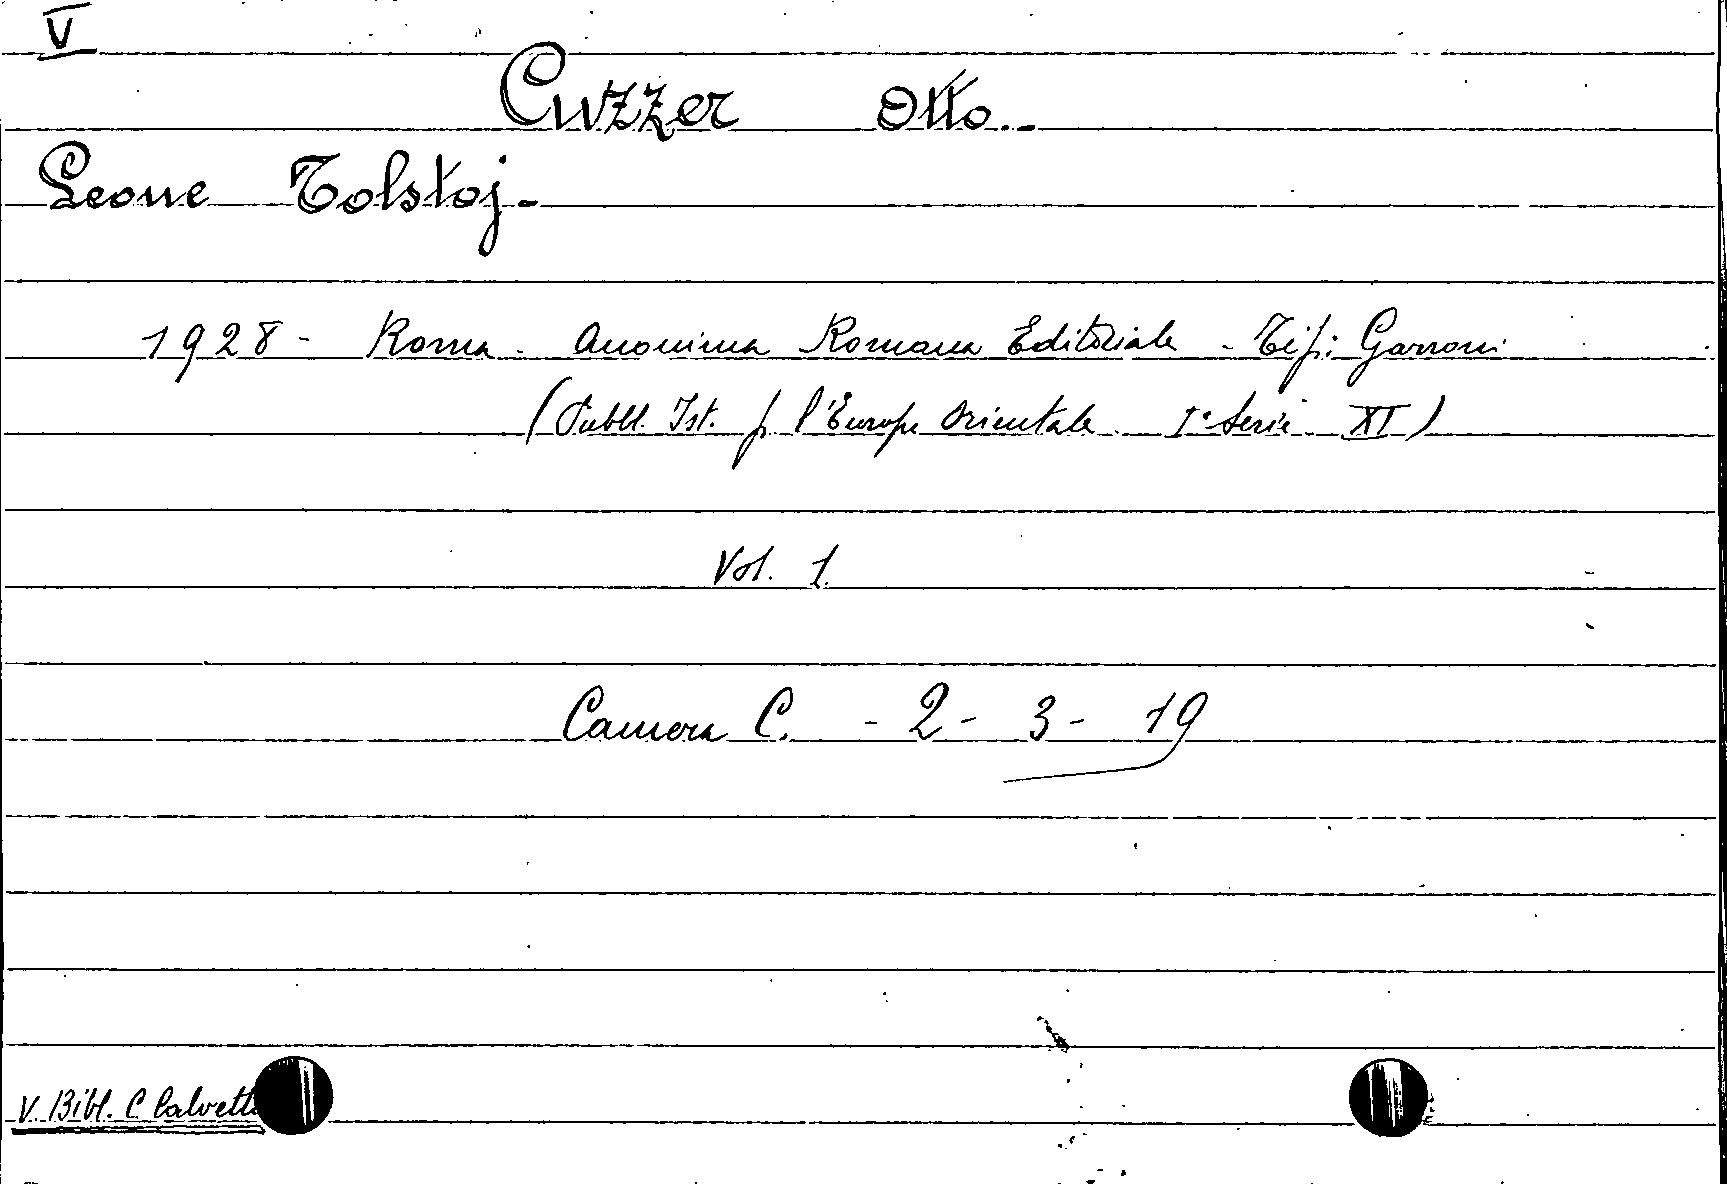 V
Cuzzer Otto.-
Leone Tolstoj.-
1928 - Roma - Anonima Romana Editoriale - Tip: Garroni
(Pubbl. Ist. p. l'Europa Orientale Iª Serie XI)
Vol. 1.
Camera C. - 2 - 3 - 19
V. Bibl. C Calvetti